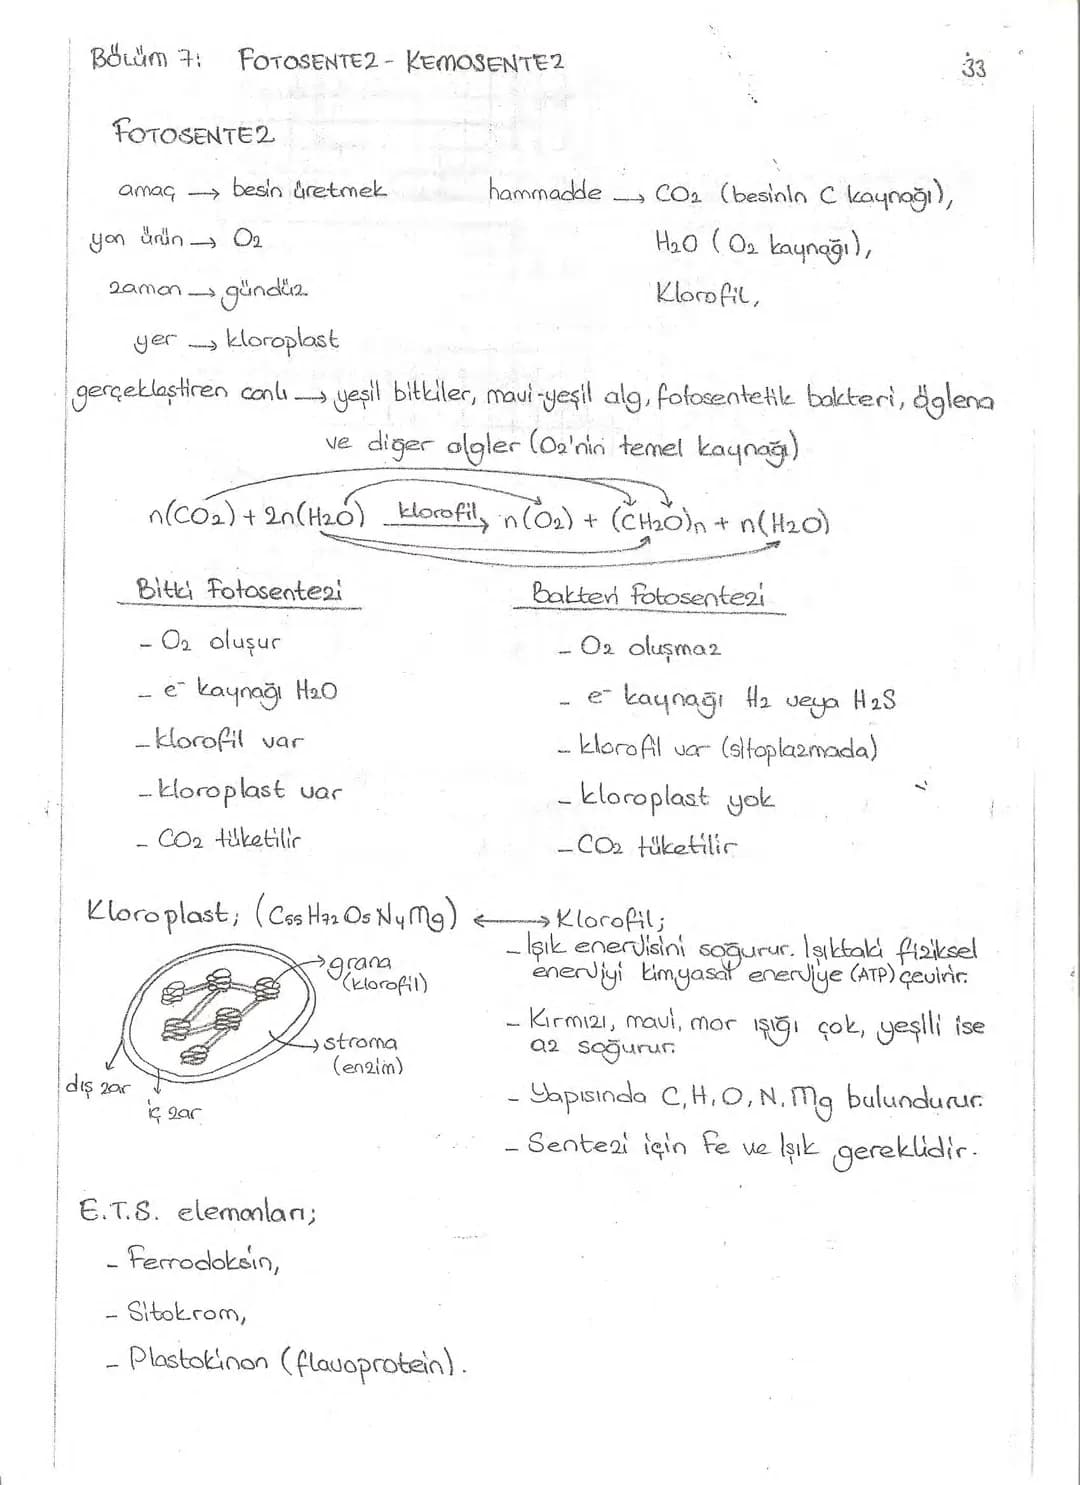 BÖLÜM 7: FOTOSENTEZ - KEMOSENTEZ
33
FOTOSENTEZ
amaç → besin üretmek
hammadde → CO₂ (besinin C kaynağı),
yan ürün → O₂
H₂O (O₂ kaynağı),
zaman → gündüz
Klorofil,
yer → kloroplast
gerçekleştiren canlı → yeşil bitkiler, mavi-yeşil alg, fotosentetik bakteri, öglena
ve diğer algler (O₂'nin temel kaynağı)
n(CO₂) + 2n(H₂O) klorofil→ n(O₂) + (CH₂O)n + n(H₂O)
Bitki Fotosentezi
- O₂ oluşur
- e⁻ kaynağı H₂O
- klorofil var
- kloroplast var
- CO₂ tüketilir
Bakteri Fotosentezi
- O₂ oluşmaz
- e⁻ kaynağı H₂ veya H₂S
- klorofil var (sitoplazmada)
- kloroplast yok
- CO₂ tüketilir
Kloroplast; (C₅₅H₇₂O₅N₄Mg) ↔ Klorofil;
grana
(klorofil)
stroma
(enzim)
dış zar
iç zar
- Işık enerjisini soğurur. Işıktaki fiziksel
enerjiyi kimyasal enerjiye (ATP) çevirir.
- Kırmızı, mavi, mor ışığı çok, yeşili ise
az soğurur.
- Yapısında C, H, O, N, Mg bulundurur.
- Sentezi için Fe ve Işık gereklidir.
E.T.S. elemanları;
- Ferrodoksin,
- Sitokrom,
- Plastokinon (flavoprotein).